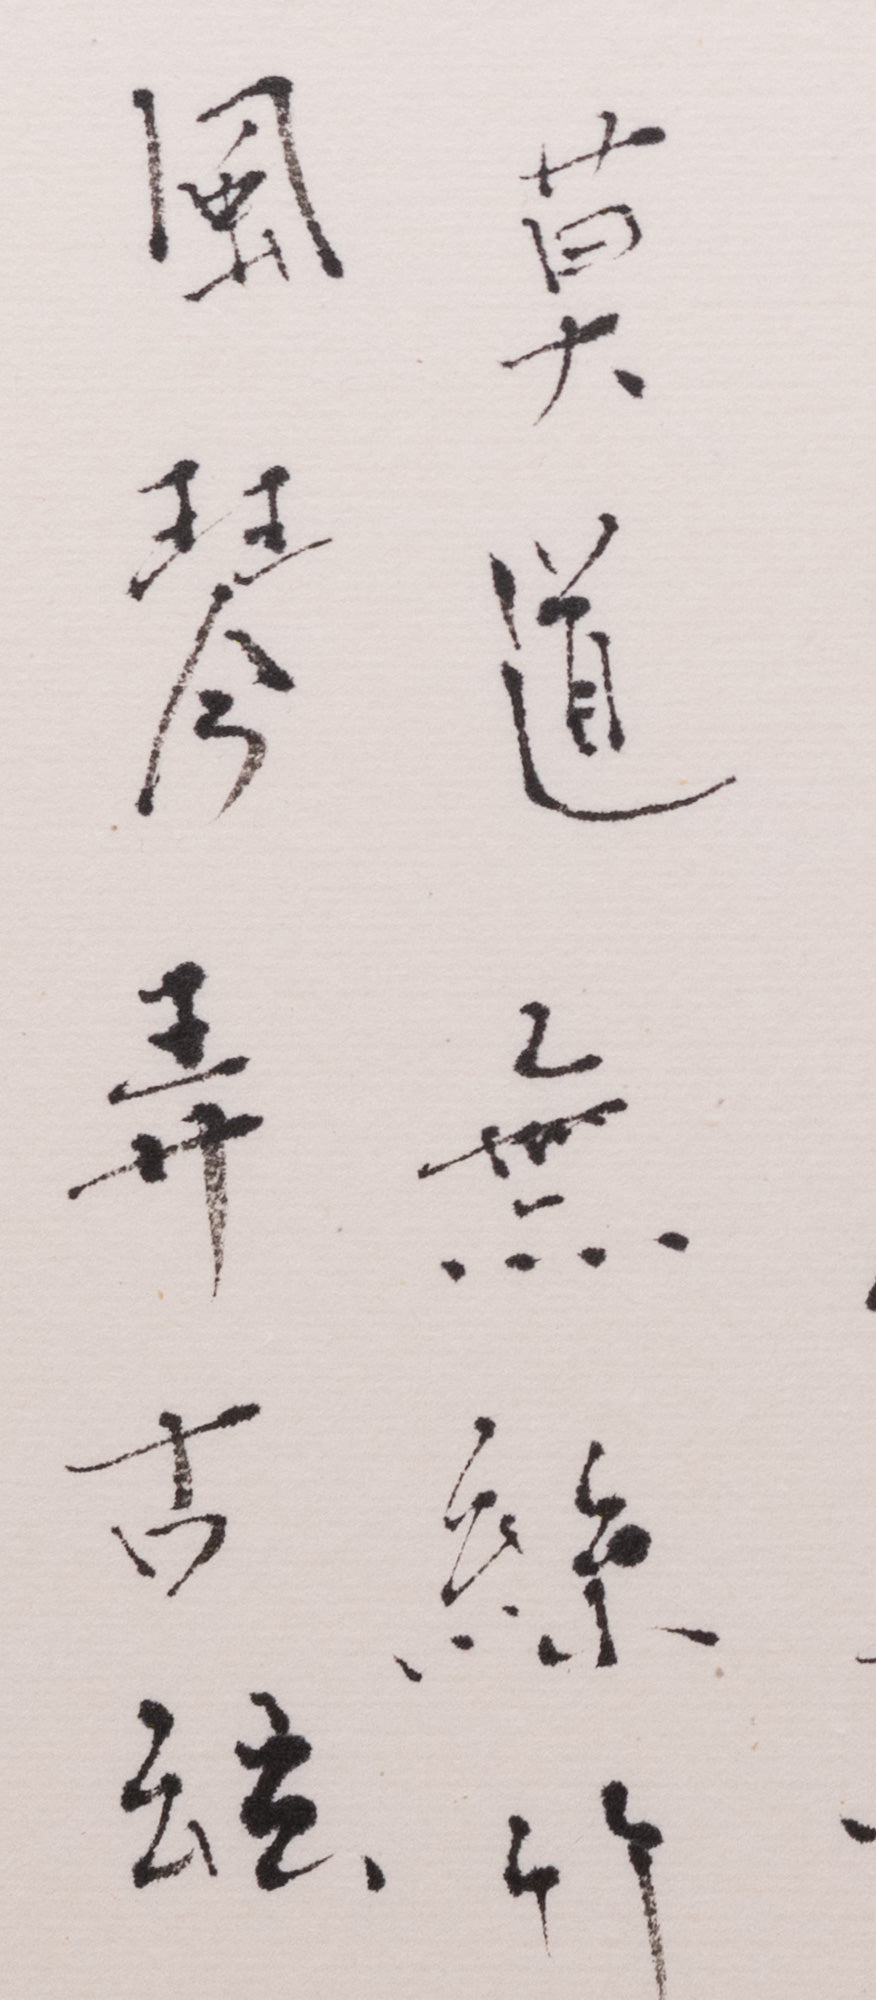 莫道無絲竹
風琴弄古絃